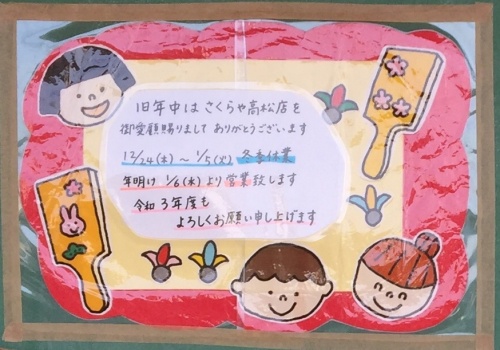 旧年中は さくらや高松店を
御愛顧賜りまして ありがとうございます
12/24(木) ～ 1/5(火) 冬季休業
年明け 1/6(水)より営業致します
令和3年度も
よろしくお願い申し上げます